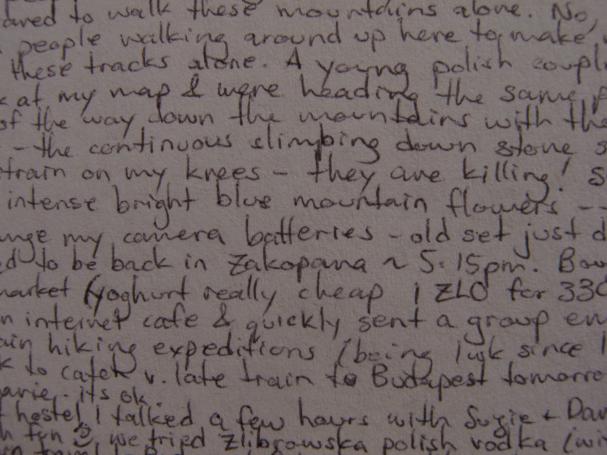 ared to walk these mountains alone. No,
people walking around up here to make
these tracks alone. A young polish coupl
at my map & were heading the same p
of the way down the mountains with the
- the continuous climbing down stone s
train on my knees - they are killing! S
intense bright blue mountain flowers -
nge my camera batteries - old set just d
ed to be back in Zakopana ~ 5.15pm. Bou
market (yoghurt really cheap 1 ZLO for 330
n internet cafe & quickly sent a group em
ain hiking expeditions (being 1wk since I
k to catch v. late train to Budapest tomorro
its ok.
t hostel I talked a few hours with Suzie + Dav
we tried Zlibrowska polish vodka (wi